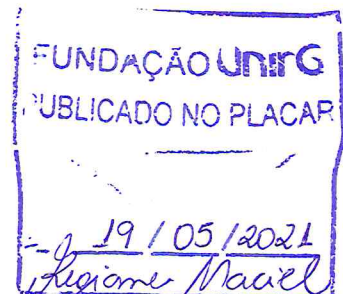 FUNDAÇÃO UnirG
PUBLICADO NO PLACAR
19 / 05 / 2021
Maciel